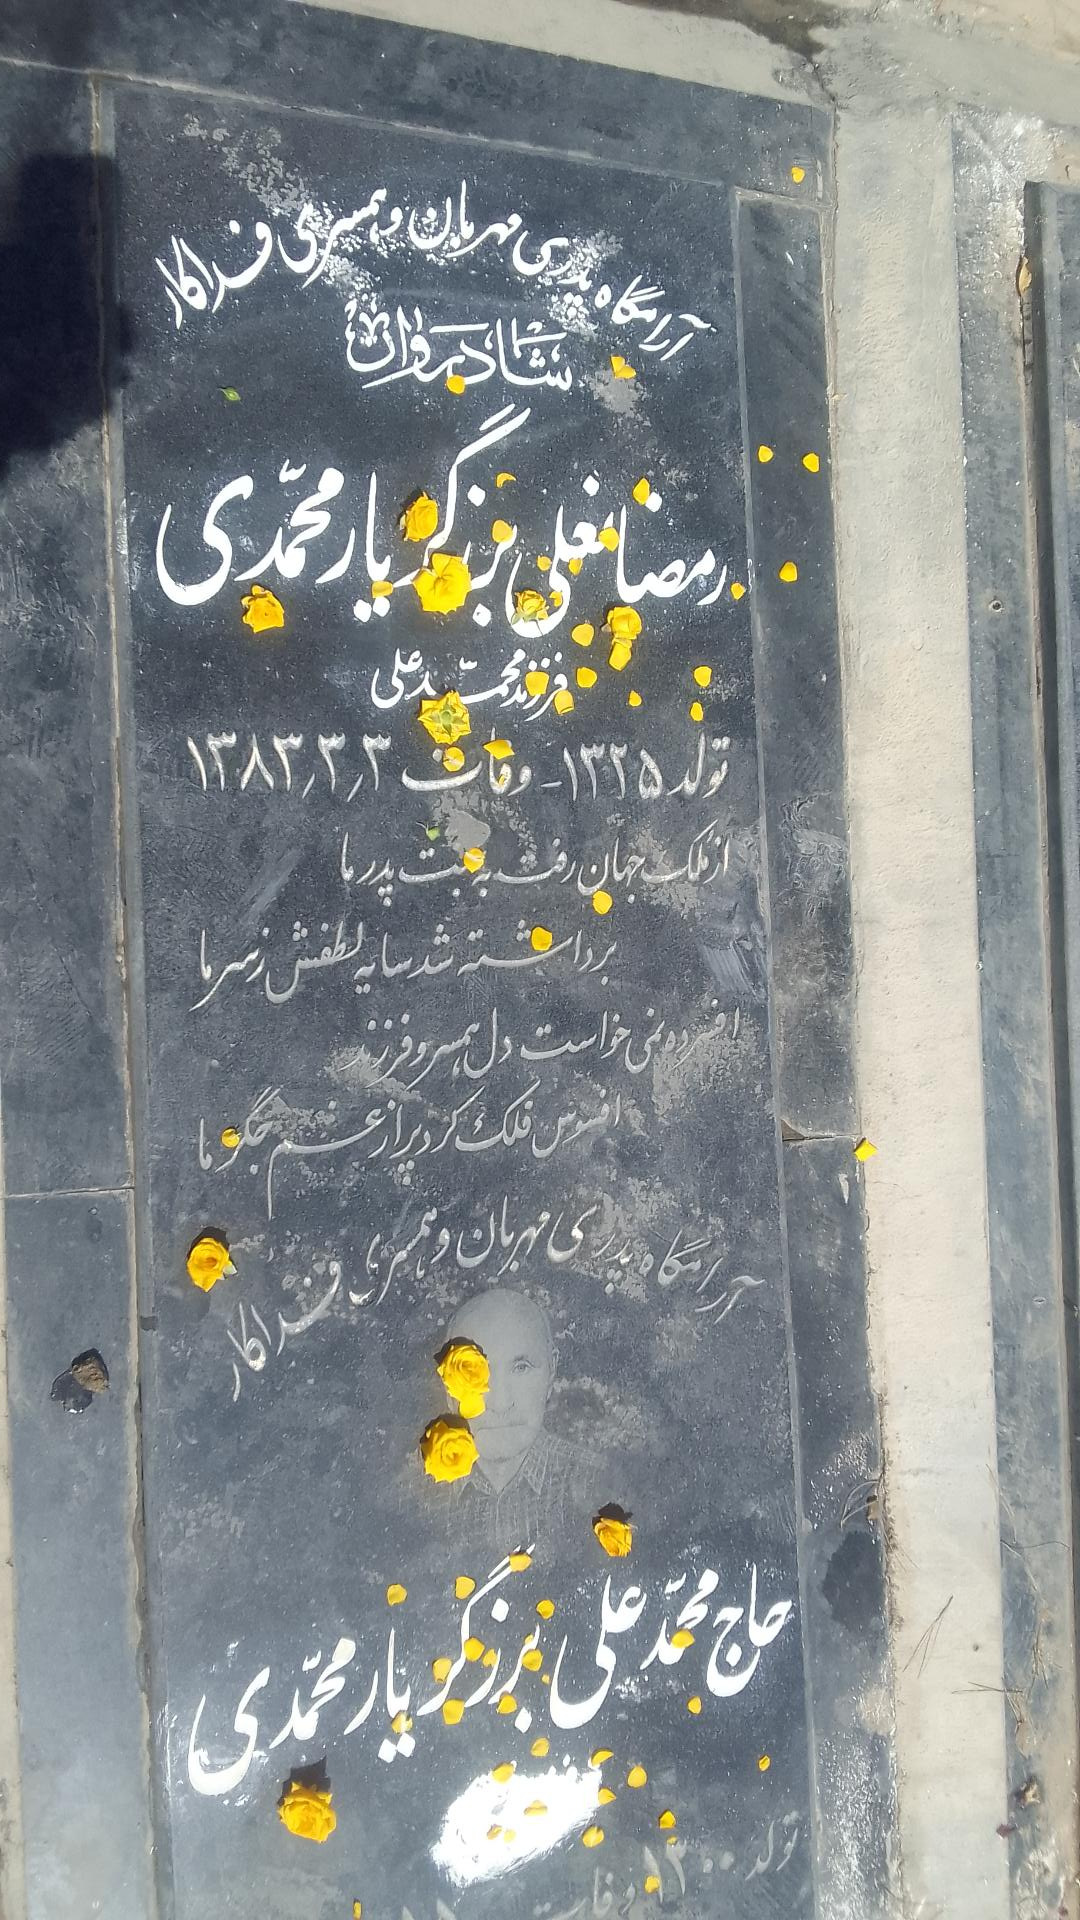 آرامگاه پدری مهربان و همسری فداکار
شادروان
رمضانعلی برزگر یارمحمدی
فرزند محمد علی
تولد ۱۳۲۵ - وفات ۱۳۸۳٫۳٫۳
از ملک جهان رفت به پدر ما
برداشته شد سایه لطفش ز سر ما
افسرده نمی خواست دل همسر و فرزند
افسوس فلک کرد پر از غم جگر ما
آرامگاه پدری مهربان و همسری فداکار
حاج محمّد علی برزگر یارمحمّدی
تولد ۱۳۰۰ وفات